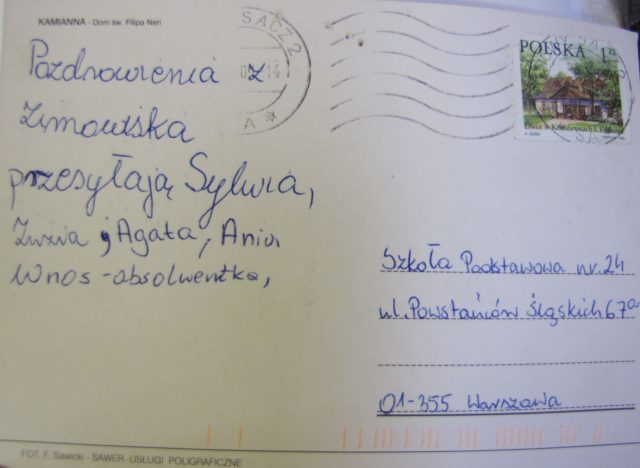 KAMIANNA - Dom św. Filipa Neri
SĄCZ 2
POLSKA 1 zł
Pozdrowienia z
Zimowiska
przesyłają Sylwia,
Zuzia, Agata, Ania
Wnos - absolwentka,
Szkoła Podstawowa nr. 24
ul. Powstańców Śląskich 67a
01-355 Warszawa
FOT. F. Sawicki - SAWER - USŁUGI POLIGRAFICZNE